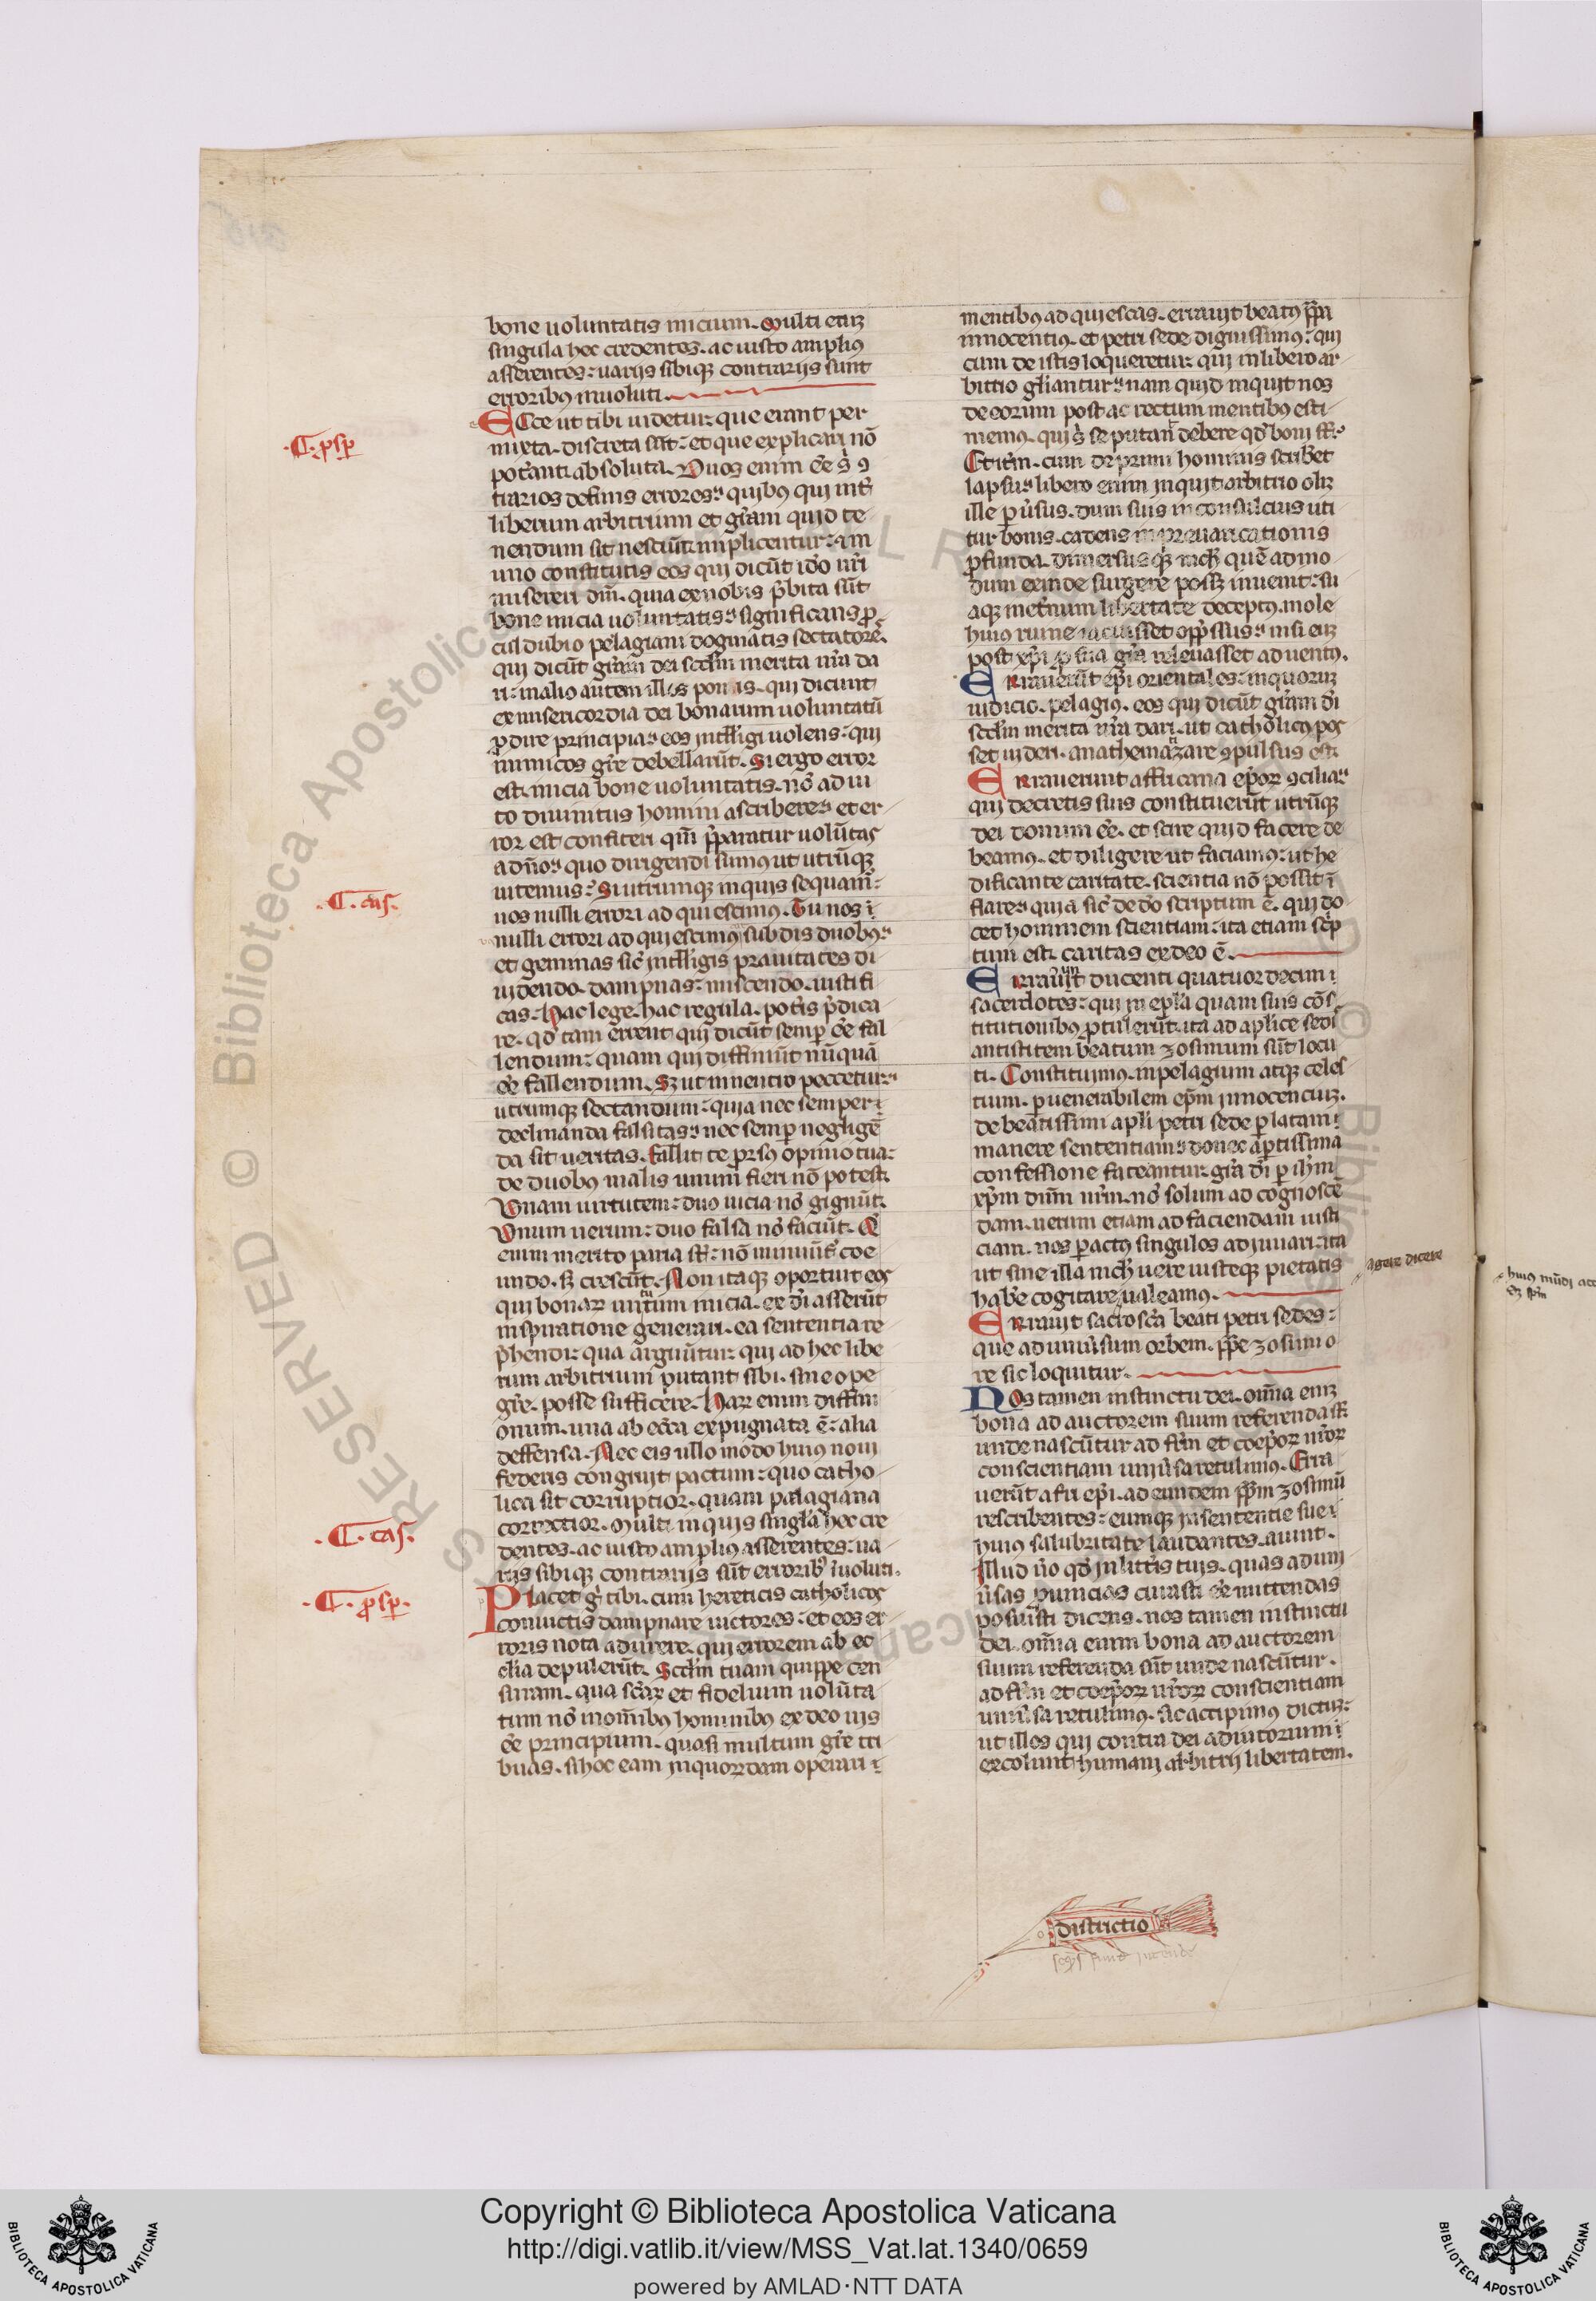 bone uoluntatis inicium. Multi enĩ
singula hec credentes. ac iusto ampliꝰ
asserentes: uarijs sibiqꝫ contrarijs sunt
erroribꝰ inuoluti.
·C. ꝓsꝑ
ECce ut tibi uidetur: que erant per
mixta. discreta sũt: et que explicari nõ
poterãt: absoluta. Duos enim ẽe ꝯ
trarios definis errores: quibꝰ qui int̃
liberum arbitrium et grãm quid te
nendum sit nesciũt implicentur: in
uno constitutis eos qui dicũt ido nr̃i
misereri dm̃. quia ex nobis p̃bita sũt
bone inicia uoluntatis: significans ꝓ
cul dubio pelagiani dogmatis sectatorẽ.
qui dicũt grãm dei scd̃m merita nr̃a da
ri: in alio autem illos ponis. qui dicunt
ex misericordia dei bonarum uoluntatũ
ꝓdire principia: eos intelligi uolens: qui
inimicos grẽ debellarũt. Si ergo error
est. inicia bone uoluntatis. nõ adiu
to diuinitus homini ascribere: et er
ror est confiteri qm̃ p̃paratur uolũtas
a dño: quo dirigendi sumꝰ ut utrũqꝫ
uitemus: Si utrumqꝫ inquis sequam̃:
·C. cas.
nos nulli errori adquiescimꝰ. Tu nos ĩ
nulli errori adquiescimꝰ subdis duobꝰ:
et geminas sic̃ intelligis prauitates di
uidendo. dampnas: miscendo. iustifi
cas: Hac lege. hac regula. potis p̃dica
re. qd̃ tam errent qui dicũt semꝑ ẽe fal
lendum: quam qui diffiniũt nũquã
ẽe fallendum. Sꝫ ut in neutro peccetur:
utrumqꝫ sectandum: quia nec semper
declinanda falsitas: nec semꝑ negligẽ
da sit ueritas. fallit te ꝓrsꝰ opinio tua:
de duobꝰ malis unum fieri nõ potest.
Vnam uirtutem: duo uicia nõ gignũt.
Vnum uerum: duo falsa nõ faciũt.
enim merito paria sũt: nõ minuũt̃ coe
undo. sꝫ crescũt. Non itaqꝫ oportuit eos
qui bonaꝝ uirtutum inicia. ex dĩ asserũt
inspiratione generari. ea sententia re
p̃hendi: qua arguũtur: qui ad hec libe
rum arbitrium putant sibi. sine ope
grẽ. posse sufficere. Haꝝ enim diffini
onum. una ab ecc̃a expugnata ẽ: alia
deffensa. Nec eis ullo modo huiꝰ noui
federis congruit pactum: quo catho
lica sit corruptior. quam palagiana
correctior. Multi inquis singl̃a hec cre
·C. cas.
dentes. ac iusto ampliꝰ asserentes: ua
rijs sibiqꝫ contrarijs sũt erroribꝰ ĩuoluti.
·C. ꝓsꝑ.
Placet g̃ tibi. cum hereticis catholicos
conuictis dampnare uictores: et eos er
roris nota adurere. qui errorem ab ec
clia depulerũt. Scd̃m tuam quippe cen
suram. qua scãꝝ et fidelium uolũta
tum nõ in om̃ibꝰ hominibꝰ ex deo uis
ẽe principium. quasi multum grẽ tri
buas. si hoc eam in quorũdam operari
mentibꝰ adquiescas. errauit beatꝰ pp̃a
innocentiꝰ. et petri sede dignissimꝰ: qui
cum de istis loqueretur qui in libero ar
bitrio gl̃iantur: nam quid inquit nos
de eorum post ac rectum mentibꝰ esti
memꝰ. qui s̃ se putant debere qd̃ boni sũt.
Et iterm̃. cum de primi hominis scribet
lapsu: libero enim inquit arbitrio olĩ
ille ꝑusus. dum suis inconsulcius uti
tur bonis. cadens in preuaricationis
ꝓfunda. dimersus qꝫ nich̃ quẽ admo
dum exinde surgere possꝫ inuenit: su
aqꝫ inet̃num libertate deceptꝰ. mole
huiꝰ ruine iacuisset opp̃ssus: nisi eũ
post xp̃i ꝓ sua grã releuasset aduentꝰ.
ERrauerũt ep̃i orientales: in quorũ
iudicio. pelagiꝰ. eos qui dicũt grãm dĩ
scd̃m merita nr̃a dari. ut catholicꝰ pos
set uideri. anathematizare ꝯpulsus est.
ERrauerunt affricana ep̃oꝝ ꝯcilia:
qui decretis suis constituerũt utrũqꝫ
dei donum ẽe. et scire quid facere de
beamꝰ. et diligere ut faciamꝰ: ut he
dificante caritate. scientia nõ possit ĩ
flare: quia sic̃ de dõ scriptum ẽ. qui do
cet hominem scientiam: ita etiam sc̃p
tum est. caritas ex deo ẽ.
ERrauerũt ducenti quatuordecim
sacerdotes: qui in ep̃la quam suis cõs
titutionibꝰ ꝓtulerũt. ita ad ap̃lice sedi
antistitem beatum zosimum sũt locu
ti. Constituimꝰ. in pelagium atqꝫ celes
tium. ꝑ uenerabilem ep̃m innocenciũ.
de beatissimi apl̃i petri sede ꝑlatam:
manere sententiam: donec aꝑtissima
confessione fateantur: grã dĩ ꝑ ih̃m
xp̃m dñm nr̃m. nõ solum ad cognoscẽ
dam. uerum etiam ad faciendam iusti
ciam. nos ꝑ actꝰ singulos adiuuari: ita
ut sine illa nich̃ uere iusteqꝫ pietatis
agere dicere
hab̃e cogitare ualeamꝰ.
ERrauit sacrosc̃a beati petri sedes:
que ad uniũsum orbem. pp̃e zosimi o
re sic loquitur.
NOs tamen instinctu dei. om̃ia enĩ
bona ad auctorem suum referenda sũt
unde nascũtur ad fr̃m et coep̃oꝝ nr̃oꝝ
conscientiam uniũsa retulimꝰ. Erra
uerũt afri ep̃i. ad eundem pp̃m zosimũ
rescribentes: eumqꝫ in sententie sue
huius salubritate laudantes. aiunt.
Illud ũo qd̃ in litt̃is tuis. quas ad uni
ũsas prouincias curasti ẽe mittendas
posuisti dicens. nos tamen instinctu
dei. om̃ia enim bona ad auctorem
suum referenda sũt unde nascũtur.
ad fr̃m et coep̃oꝝ nr̃oꝝ conscientiam
uniũsa retulimꝰ. sic accipimꝰ dictũ:
ut illos qui contra dei adiutorium
excolunt humani arbitrij libertatem.
districtio
huiꝰ mũdi
Copyright © Biblioteca Apostolica Vaticana
http://digi.vatlib.it/view/MSS_Vat.lat.1340/0659
powered by AMLAD·NTT DATA
BIBLIOTECA APOSTOLICA VATICANA
BIBLIOTECA APOSTOLICA VATICANA